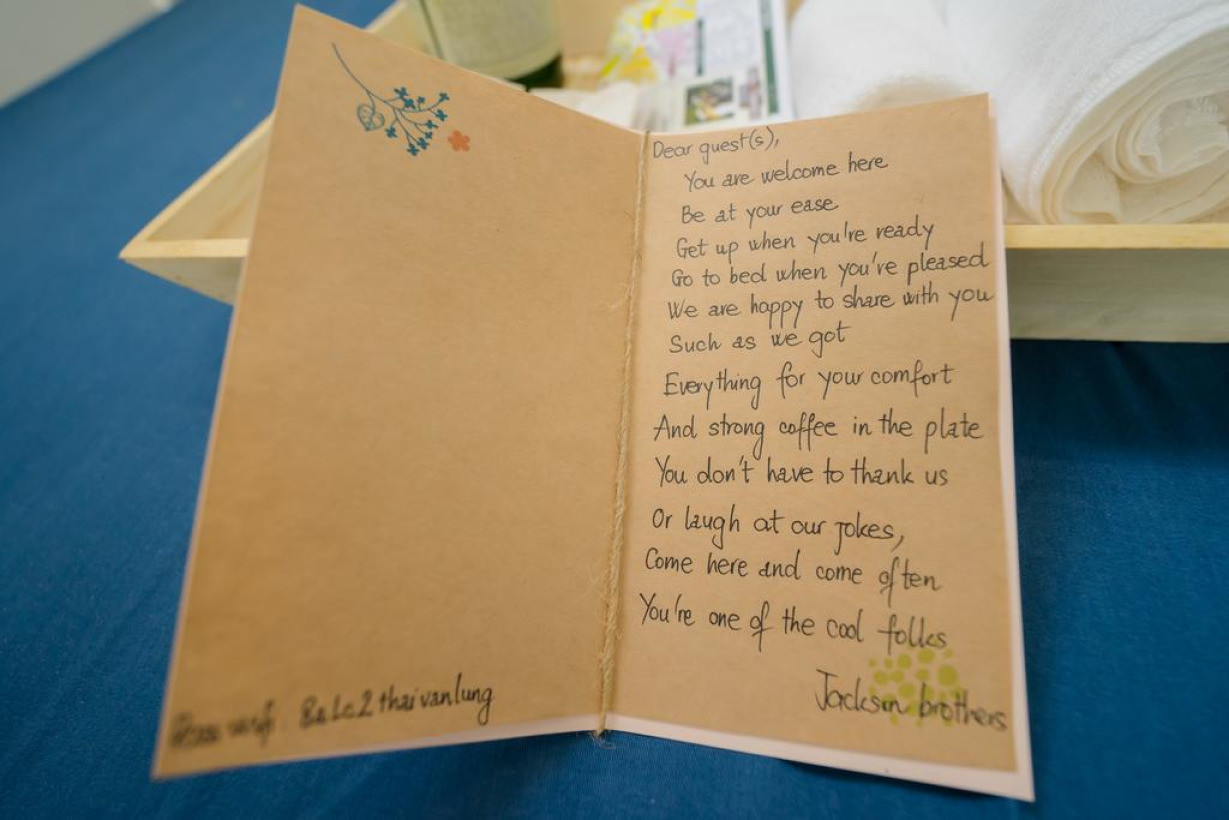 Dear guest(s),
You are welcome here
Be at your ease
Get up when you're ready
Go to bed when you've pleased
We are happy to share with you
Such as we got
Everything for your comfort
And strong coffee in the plate
You don't have to thank us
Or laugh at our jokes,
Come here and come often
You're one of the cool folks
Jackson brothers
thaivanlung